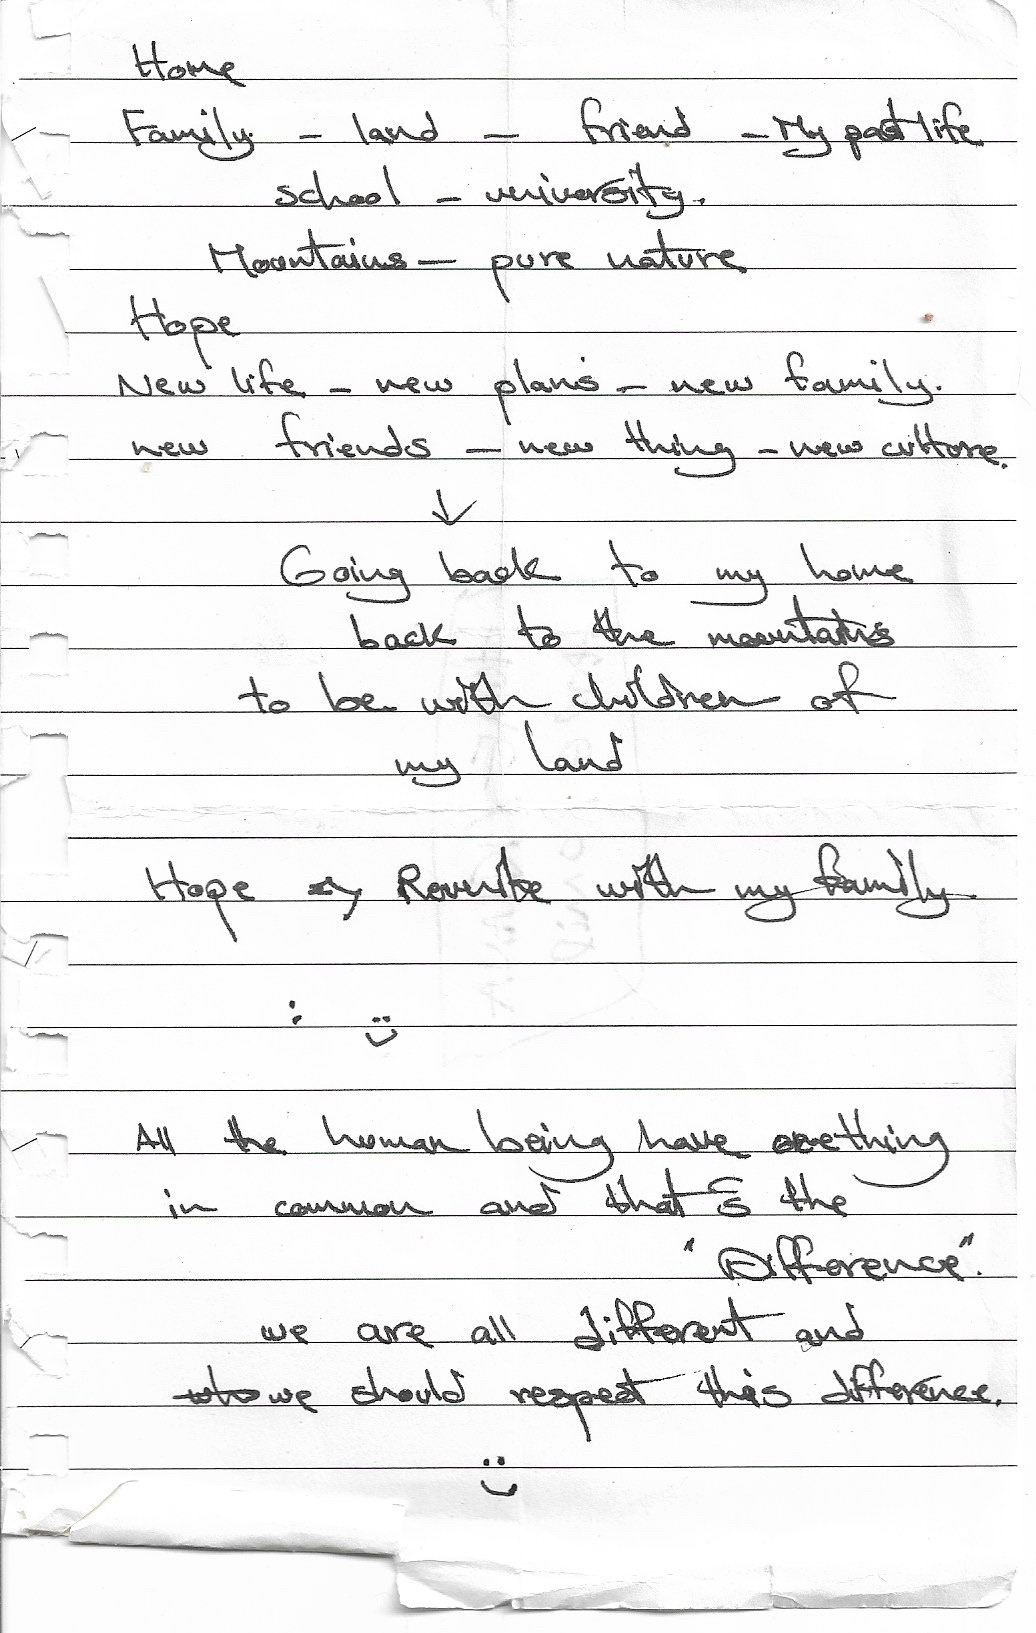 Home
Family - land - friend - My past life
school - university.
Mountains - pure nature
Hope
New life - new plans - new family.
new friends - new thing - new culture.
↓
Going back to my home
back to the mountains
to be with children of
my land
Hope → with my family
: :)
All the human being have onething
in common and that's the
"Difference".
we are all different and
who we should respect this difference.
:)